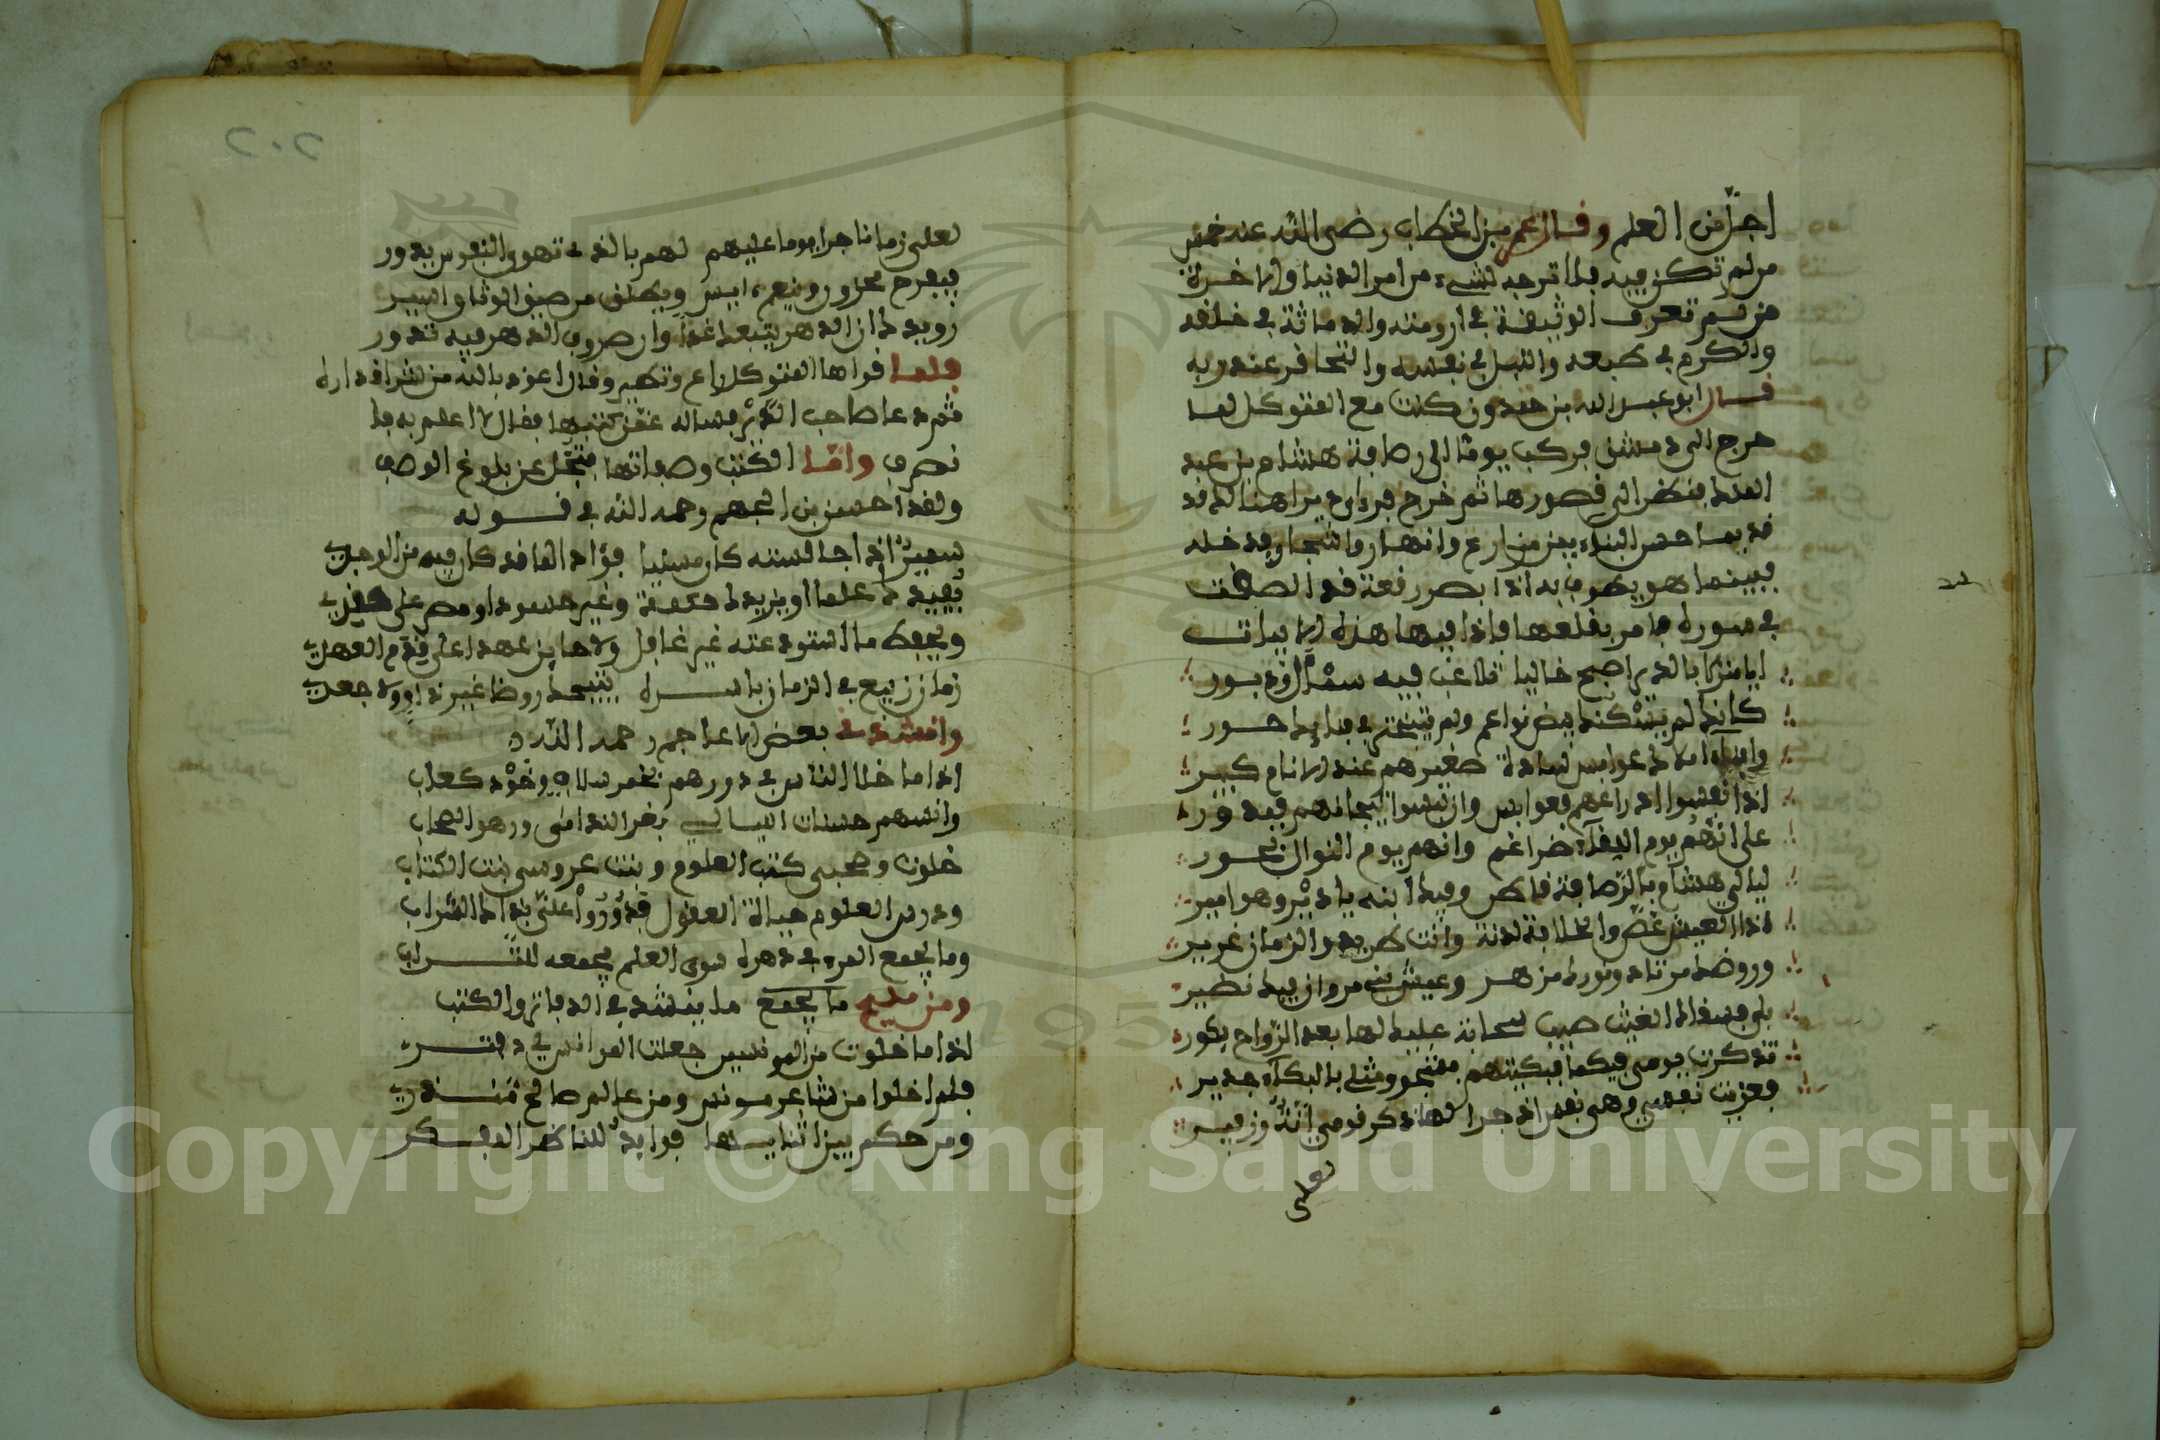 اجل من العلم وقال عمر بن الخطاب رضى الله عنه خمس
من لم تكن فيه فلا ترجه لشىء من امر الدنيا والاخرة
من لم تعرف الوثيقة في ارومته والدماثة في خلقه
والكرم في طبعه والنبل في نفسه والمخافة عند ربه
قال ابو عبد الله بن حمدون كنت مع المتوكل لما
خرج الى دمشق فركب يوما الى رصافة هشام بن عبد
الملك فنظر الى قصورها ثم خرج فراى ديرا هنالك قد
قديما حسن البناء بين مزارع وانهار واشجار فدخله
فبينما هو يطوف به اذا بصر رقعة قد الصقت
في صدره فامر بقلعها فاذا فيها هذه الابيات
ايا منزلا بالدير اصبح خاليا تلاعب فيه شمال ودبور
كانك لم يسكنك بيض نواعم ولم تتبختر في فنائك حور
وابناء املاك عواسن سادة صغيرهم عند الانام كبير
اذا لبسوا ادراعهم فعوابس وان لبسوا تيجانهم فبدور
على انهم يوم اللقاء ضراغم وانهم يوم النوال بحور
ليالي هشام بالرصافة قاطن وفيك ابنه يا دير وهو امير
اذ العيش غض والخلافة لدنة وانت طرير والزمان غرير
وروضك مرتاد ونورك مزهر وعيش بني مروان فيك نضير
بلى فسقاك الغيث صيب سحابة عليك لها بعد الرواح بكور
تذكرت قومي فيكما فبكيتهم بشجو ومثلى بالبكاء جدير
فعزيت نفسي وهي نفس اذا جرا لها ذكر قومي انة وزفير
لعلى
٢٠٢
لعلى زمانا جار يوما عليهم لهم بالذى تهوى النفوس يدور
فيفرح محزون وينعم بايس ويطلق من ضيق الوثاق اسير
رويدك ان الدهر يتبعه غدا وان صروف الدهر فيه تدور
فلما قراها المتوكل ارتاع وتطير وقال اعوذ بالله من شر اقداره
ثم دعا صاحب الدير فساله عمن كتبها فقال لا علم به فا
نصرف واما الكتب وصفاتها فتجل عن بلوغ الوصف
ولقد احسن بن الجهم رحمه الله في قوله
سمير اذا جالسته كان مسليا فؤادك مما فيه من الم الوجد
يفيدك علما او يزيدك حكمة وغير حسود او مصر على حقد
ويحفظ ما استودعته غير غافل ولا خاين عهدا على قدم العهد
زمان ربيع في الزمان باسره يبيحك روضا غير ذاو ولا جعد
وانشدنى بعض الاعاجم رحمه الله
اذا ما خلا الناس في دورهم بخمر سلاف وخود كعاب
وانسهم حسنات الليالي
خلوت وصحبى كتب العلوم وبنت عروسى بنت الكتاب
ودرس العلوم حياة العقول فدوروا على بذاك الشراب
وما يجمع المرء في دهره سوى العلم يجمعه للتراب
ومن مليح ما يجمع ما ينشد في الدفاتر والكتب
اذا ما خلوت من المونسين جعلت المؤانس لي دفتري
فلم اخلوا من شاعر مونس ومن عالم صالح منذر
ومن حكم بين اثنايها فوايد للناظر المفكر